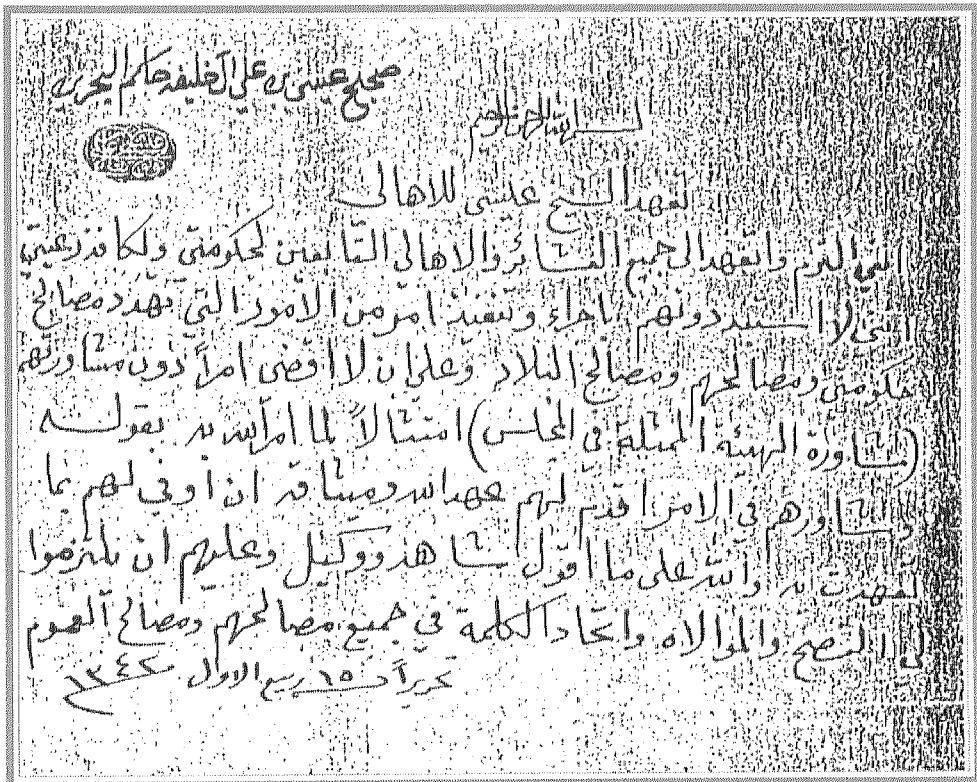 صحيح عيسى بن علي آل خليفه حاكم البحرين
بسم الله الرحمن الرحيم
تعهد الشيخ عيسى للاهالي
انني التزم واتعهد الى جميع العشائر والاهالي التابعين لحكومتي ولكافة رعيتي
انني لا استبد دونهم باجراء وتنفيذ امر من الامور التي تهدد مصالح
حكومتي ومصالحهم ومصالح البلاد وعلي ان لا اقضى امراً دون مشاورتهم
(مشاورة الهيئه الممثلة في المجلس) امتثالاً لما امر الله به بقوله
وشاورهم في الامر اقدم لهم عهد الله وميثاقه ان اوفي لهم بما
تعهدت به والله على ما اقول شاهد ووكيل وعليهم ان يلتزموا
لي النصح والموالاه واتحاد الكلمة في جميع مصالحهم ومصالح العموم
تحريراً في ١٥ ربيع الاول ١٣٤٢